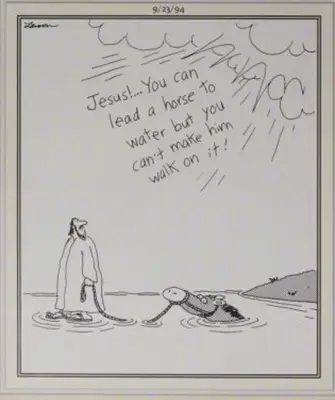 9/23/94
Larson
Jesus!...You can
lead a horse to
water but you
can't make him
walk on it!